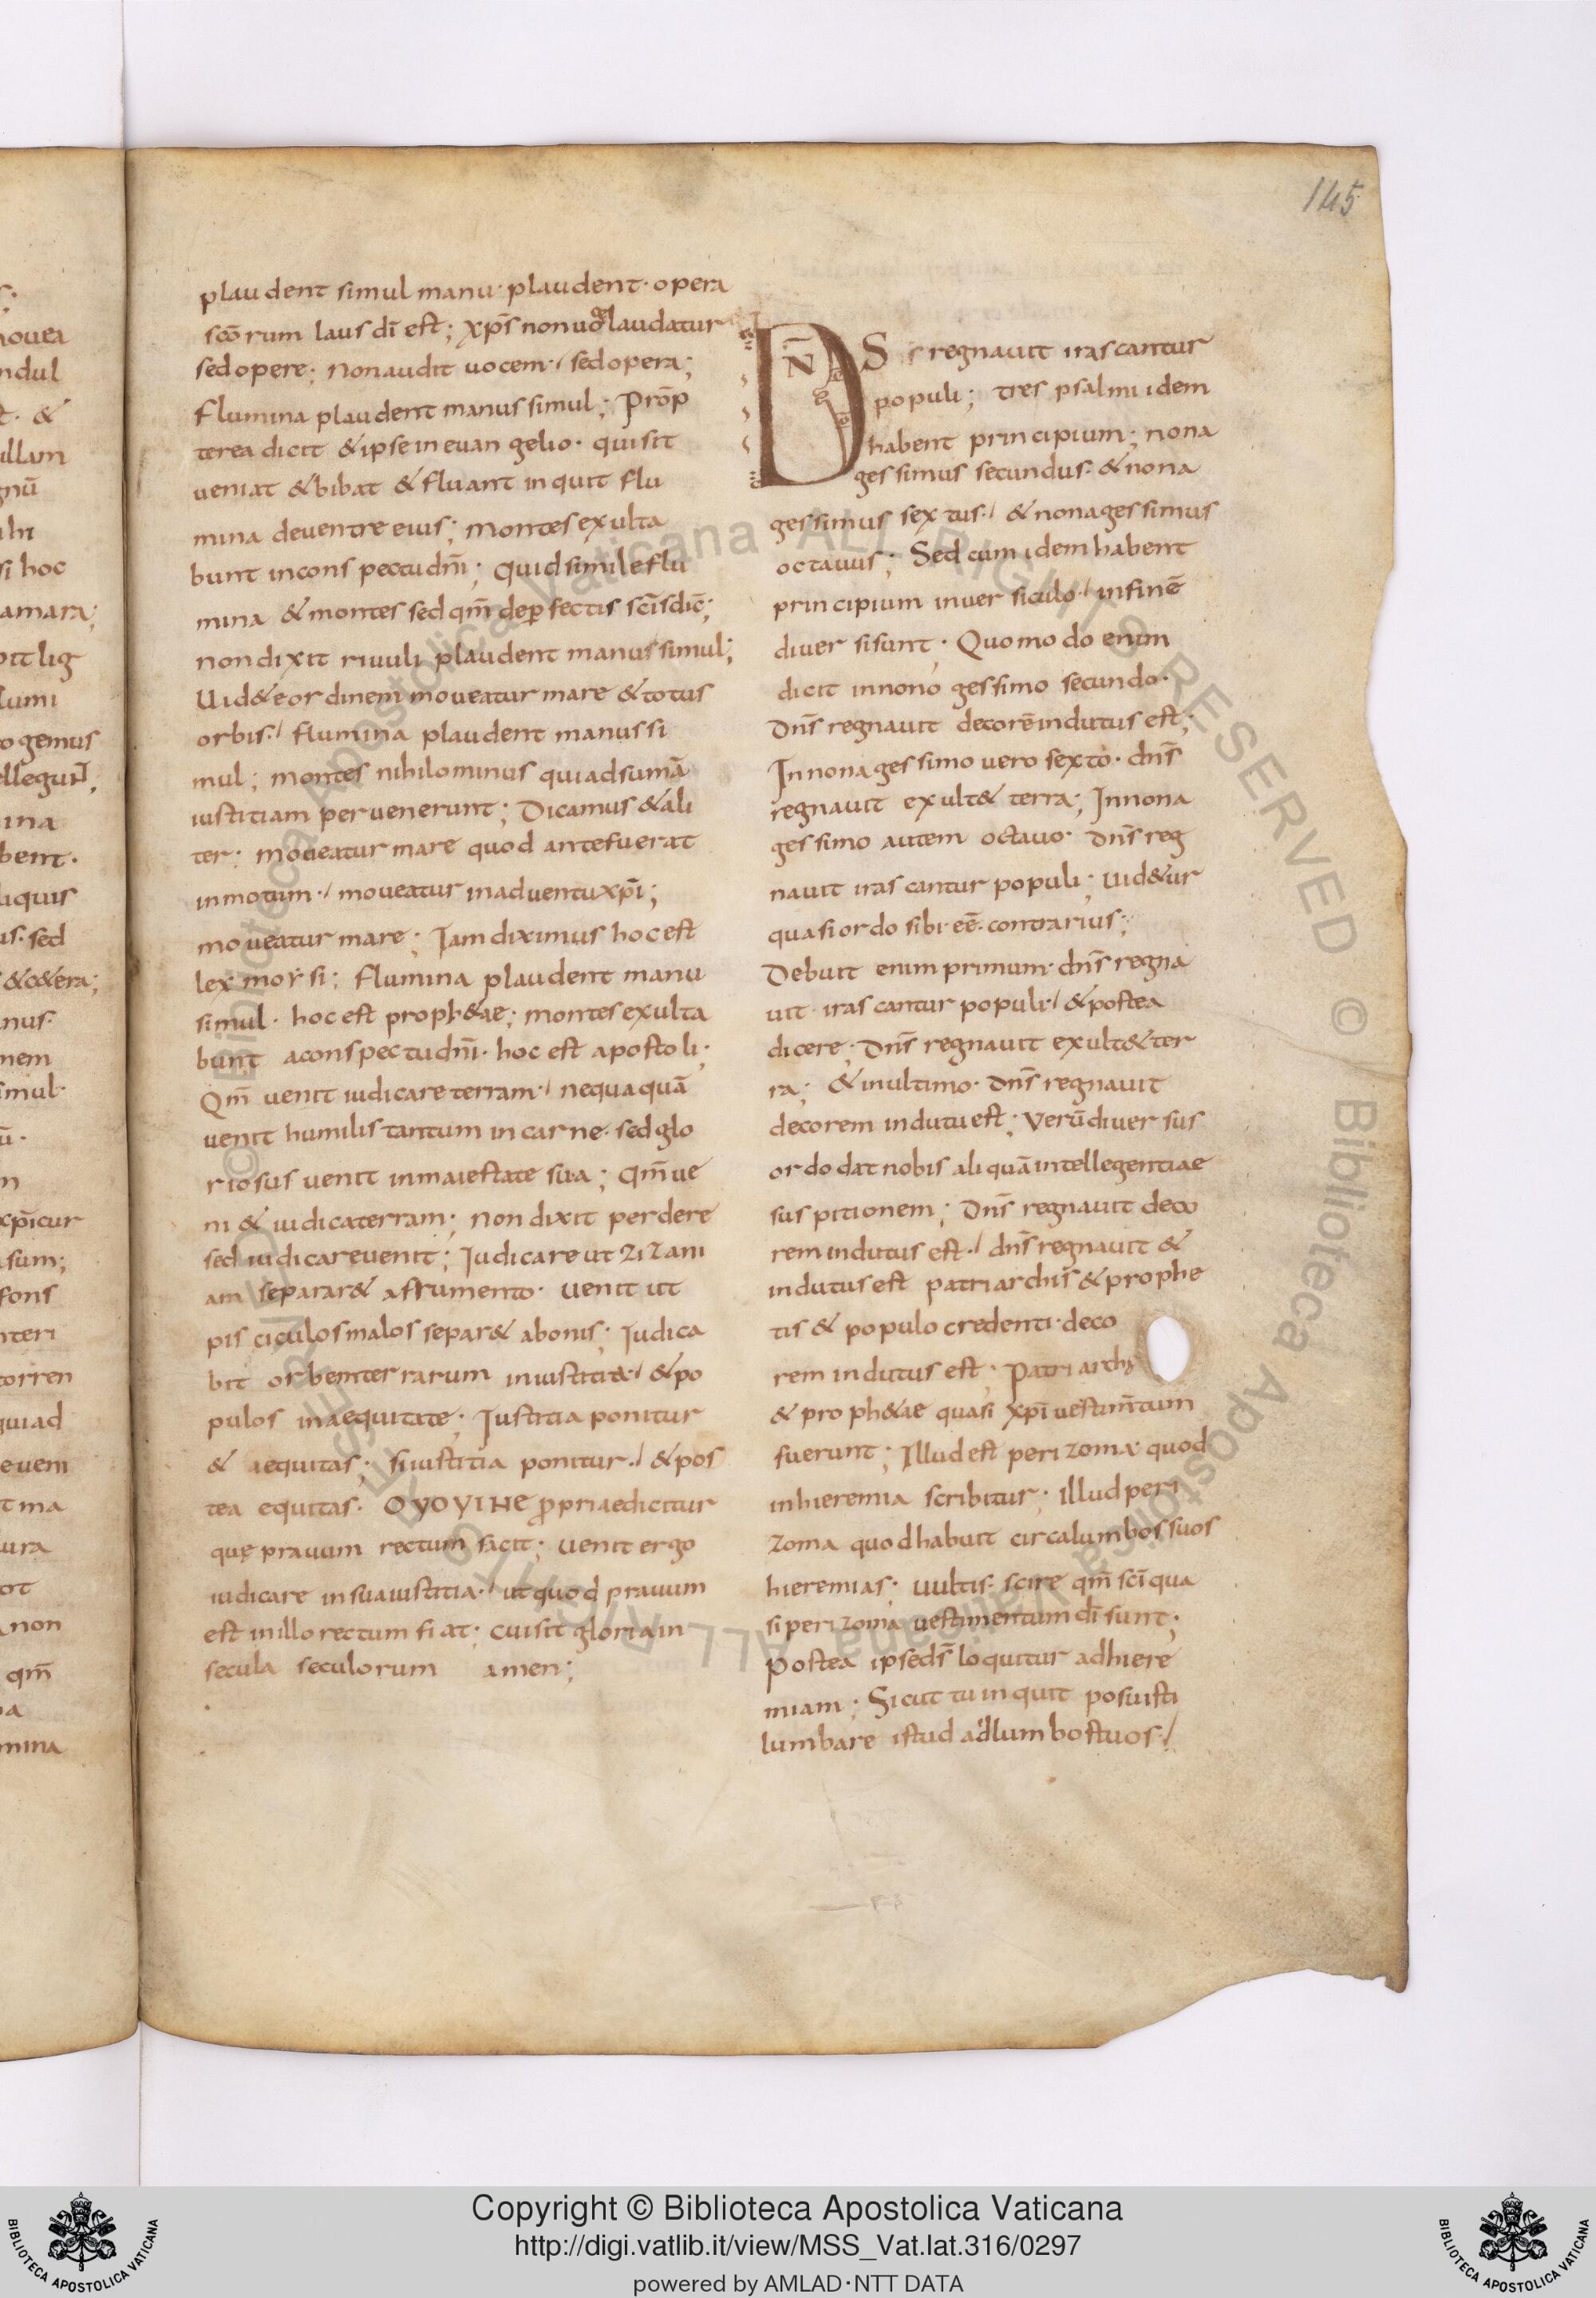 145
plaudent simul manu· plaudent· opera
scōrum laus dī est; xp̄s non uoce laudatur
sed opere; non audit uocem·/ sed opera;
flumina plaudent manus simul; Prōp
terea dicit & ipse in euangelio· qui sitit
ueniat & bibat & fluant inquit flu
mina de uentre eius; montes exulta
bunt in conspectu dn̄i; quid simile flu
mina & montes sed qm̄ de perfectis scīs dic̄;
non dixit riuuli plaudent manus simul;
Uid&e ordinem moueatur mare & totus
orbis·/ flumina plaudent manus si
mul; montes nihilominus qui ad sumā
iustitiam peruenerunt; Dicamus & ali
ter· moueatur mare quod ante fuerat
inmotum·/ moueatur in aduentu xpī;
moueatur mare; Iam diximus hoc est
lex moysi; flumina plaudent manu
simul· hoc est proph&ae; montes exulta
bunt a conspectu dn̄i· hoc est apostoli·
Qm̄ uenit iudicare terram·/ nequaquā
uenit humilis tantum in carne· sed glo
riosus uenit in maiestate sua; Qm̄ ue
ni & iudica terram; non dixit perdere
sed iudicare uenit; Iudicare ut zizani
am separar& a frumento· uenit ut
pisciculos malos separ& a bonis; Iudica
bit orbem terrarum in iustitia·/ & po
pulos in aequitate; Iustitia ponitur
& aequitas; si iustitia ponitur·/ & pos
tea equitas· OYOYINE propriae dicitur
quę prauum rectum facit; uenit ergo
iudicare in sua iustitia·/ ut quod prauum
est in illo rectum fiat; cui sit gloria in
secula seculorum amen;
DN̄S regnauit irascantur
populi; tres psalmi idem
habent principium; nona
gessimus secundus· & nona
gessimus sextus·/ & nonagessimus
octauus; Sed cum idem habent
principium in uersiculo·/ in finē
diuersi sunt· Quomodo enim
dicit in nonogessimo secundo·
Dn̄s regnauit decorē indutus est;
In nonagessimo uero sexto· dn̄s
regnauit exult& terra; In nona
gessimo autem octauo· Dn̄s reg
nauit irascantur populi; uid&ur
quasi ordo sibi· eē· contrarius;
Debuit enim primum· dn̄s regna
uit· irascantur populi·/ & postea
dicere; Dn̄s regnauit exult& ter
ra; & in ultimo· Dn̄s regnauit
decorem indutu est; Verū diuersus
ordo dat nobis aliquā intellegentiae
suspitionem; Dn̄s regnauit deco
rem indutus est·/ dn̄s regnauit &
indutus est patriarchis & prophe
tis & populo credenti· deco
rem indutus est; Patriarchę
& proph&ae quasi xpī uestim̄tum
fuerunt; Illud est perizoma· quod
in hieremia scribitur· Illud peri
zoma quod habuit circa lumbos suos
hieremias; uultis scire qm̄ scī qua
si perizoma uestimentum dī sunt;
Postea ipse ds̄ loquitur ad hiere
miam; Sicut tu inquit posuisti
lumbare istud ad lumbos tuos·/
Copyright © Biblioteca Apostolica Vaticana
http://digi.vatlib.it/view/MSS_Vat.lat.316/0297
powered by AMLAD·NTT DATA